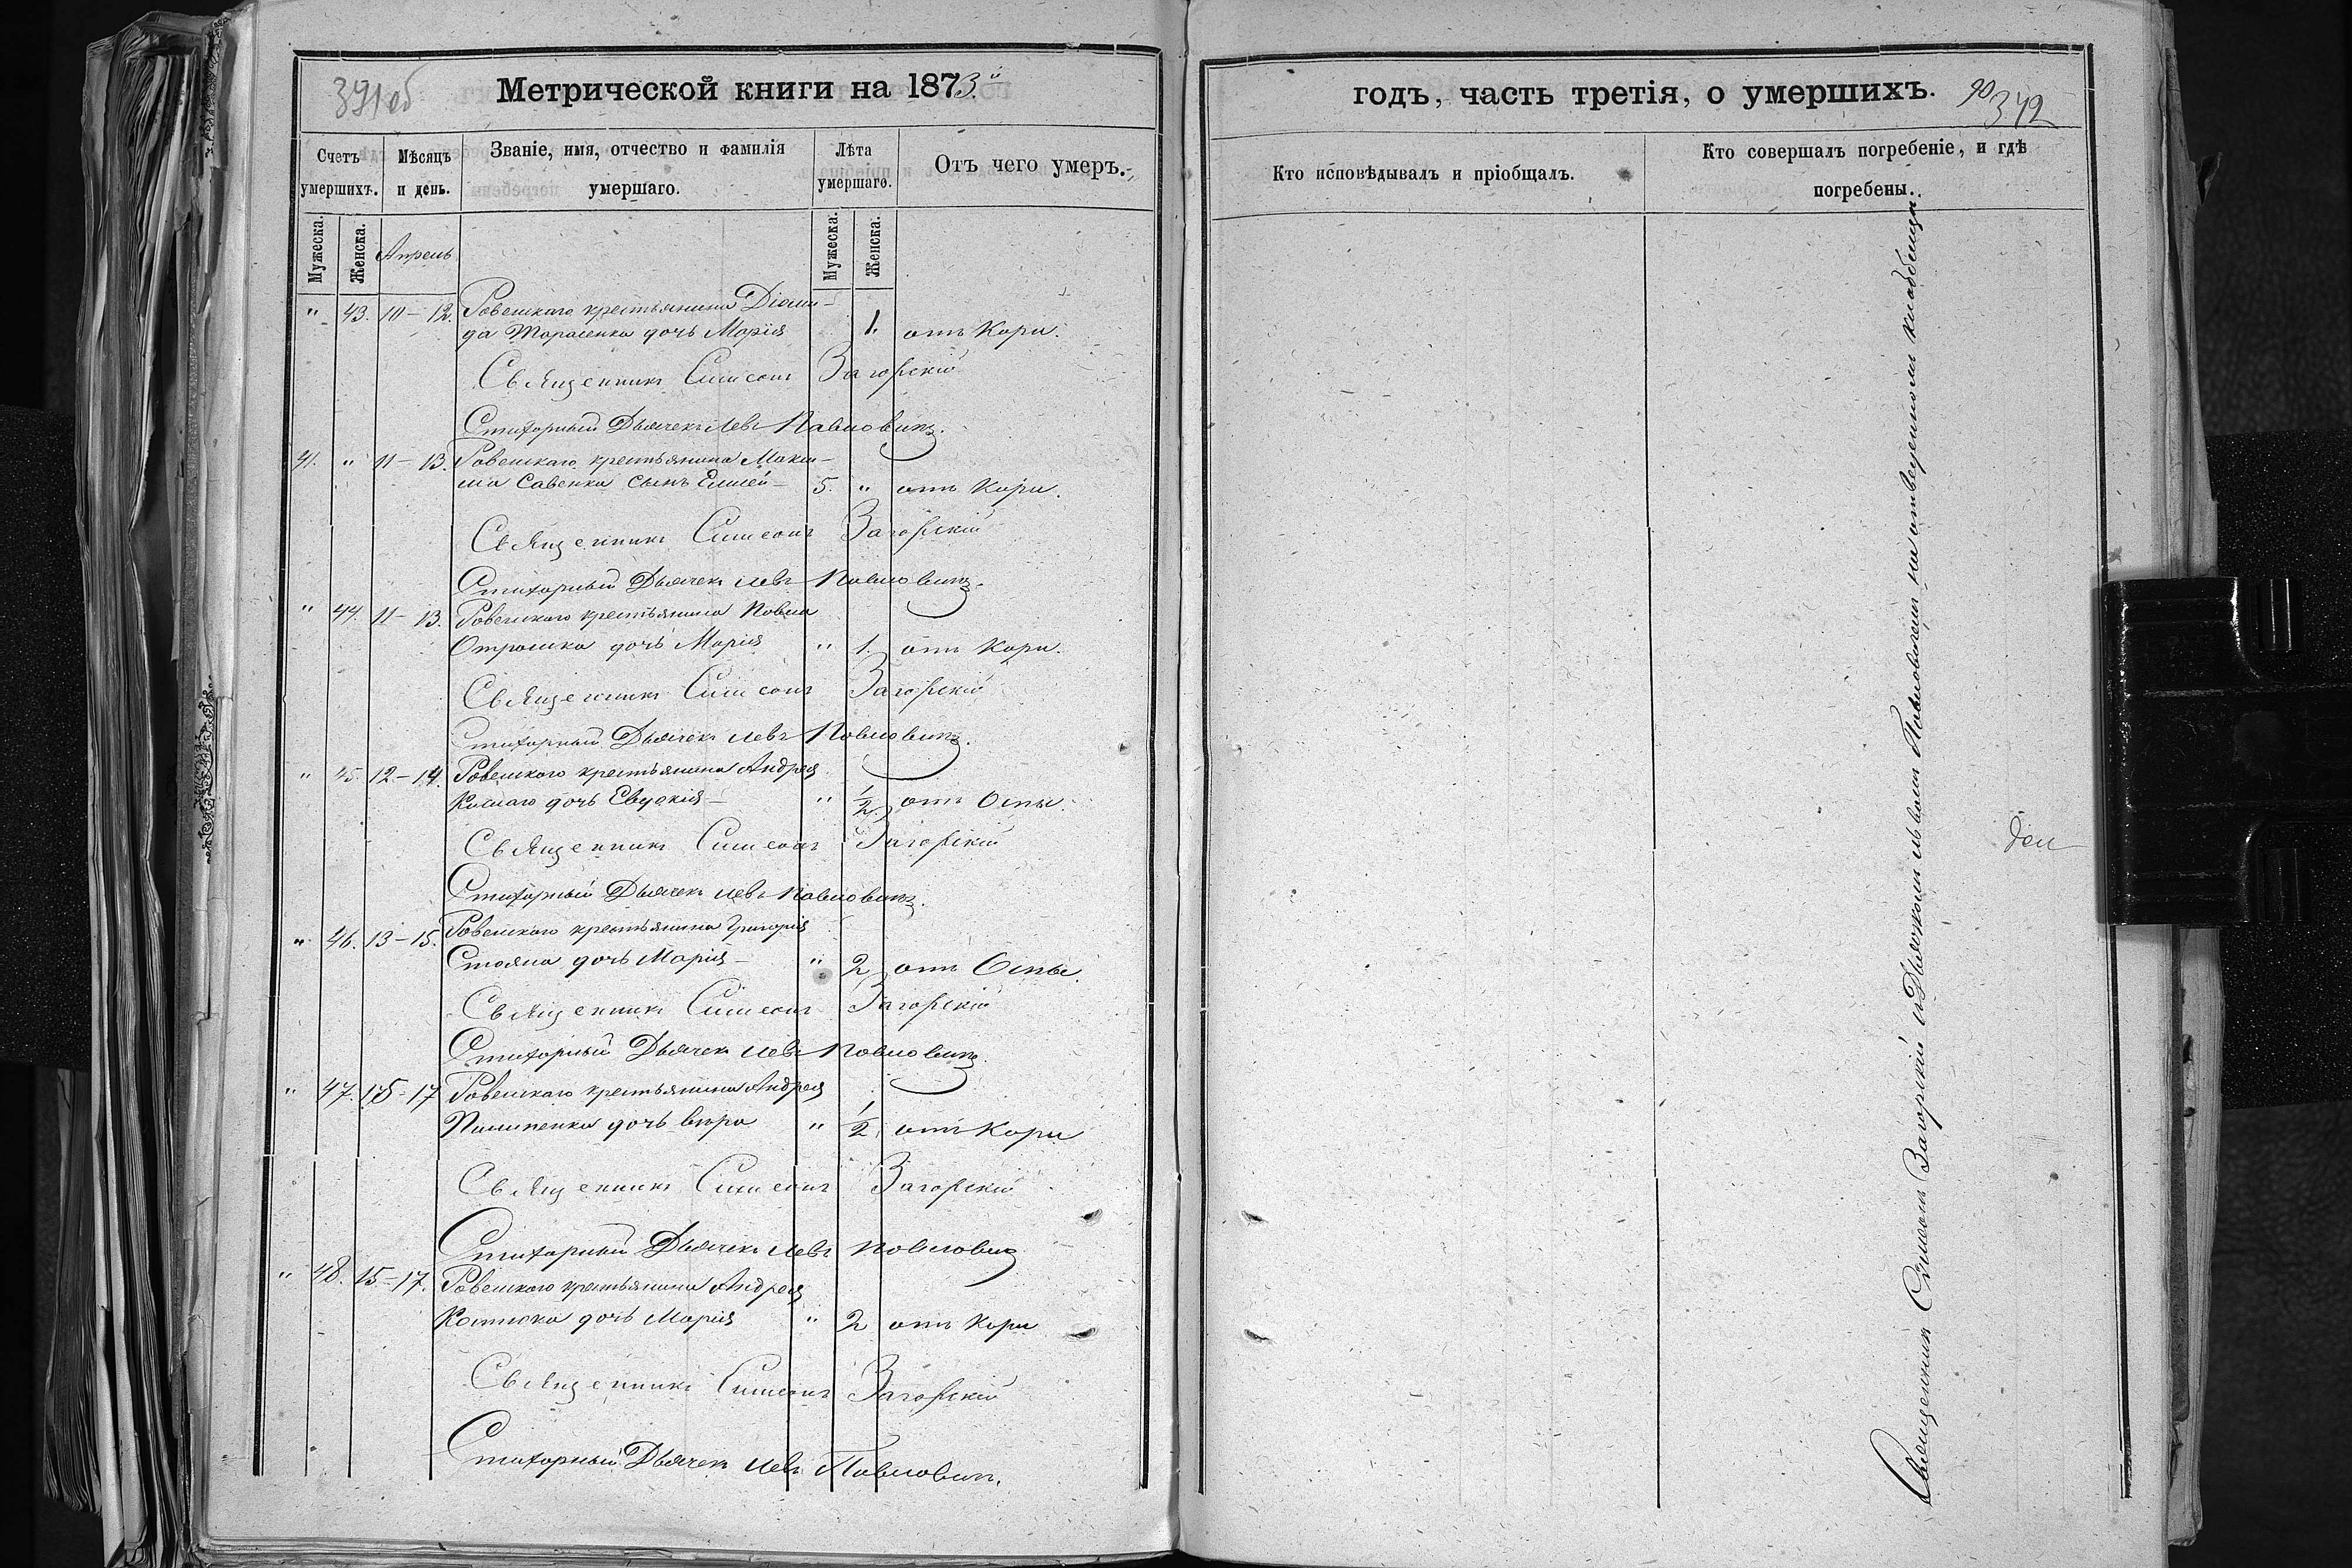 391об
Метрической книги на 1873й
Счетъ умершихъ.
Мѣсяцъ и день.
Званіе, имя, отчество и фамилія умершаго.
Лѣта умершаго.
Отъ чего умеръ.
Мужеска.
Женска.
Апрель
Мужеска.
Женска.
" 43. 10-12. Ровенскаго крестьянина Діоми-
да Тарасенка дочь Марія 1. отъ Кори.
Священникъ Симеонъ Загорскій
Стихарный Дьячекъ Левъ Павловичъ.
41. " 11-13. Ровенскаго крестьянина Макси-
ма Савенка сынъ Елисей 5. " отъ Кори.
Священникъ Симеонъ Загорскій
Стихарный Дьячекъ Левъ Павловичъ.
" 44. 11-13. Ровенскаго крестьянина Павла
Отрошка дочь Марія " 1. отъ Кори.
Священникъ Симеонъ Загорскій
Стихарный Дьячекъ Левъ Павловичъ.
" 45. 12-14. Ровенского крестьянина Андрея
дочь Евдокія " 1/2. отъ Оспы.
Священникъ Симеонъ Загорскій
Стихарный Дьячекъ Левъ Павловичъ.
" 46. 13-15. Ровенского крестьянина Григорія
Стояна дочь Марія " 2 отъ Оспы.
Священникъ Симеонъ Загорскій
Стихарный Дьячекъ Левъ Павловичъ.
" 47. 15-17 Ровенскаго крестьянина Андрея
Пилипенка дочь Вѣра " 1/2. отъ Кори
Священникъ Симеонъ Загорскій
Стихарный Дьячекъ Левъ Павловичъ
" 48. 15-17. Ровенского крестьянина Андрея
Костюка дочь Марія " 2 отъ Кори
Священникъ Симеонъ Загорскій
Стихарный Дьячекъ Левъ Павловичъ.
годъ, часть третія, о умершихъ.
90
342
Кто исповѣдывалъ и пріобщалъ.
Кто совершалъ погребеніе, и гдѣ погребены.
Священникъ Симеонъ Загорскій съ Дьячкомъ Львомъ Павловичемъ на отведенномъ кладбищи.